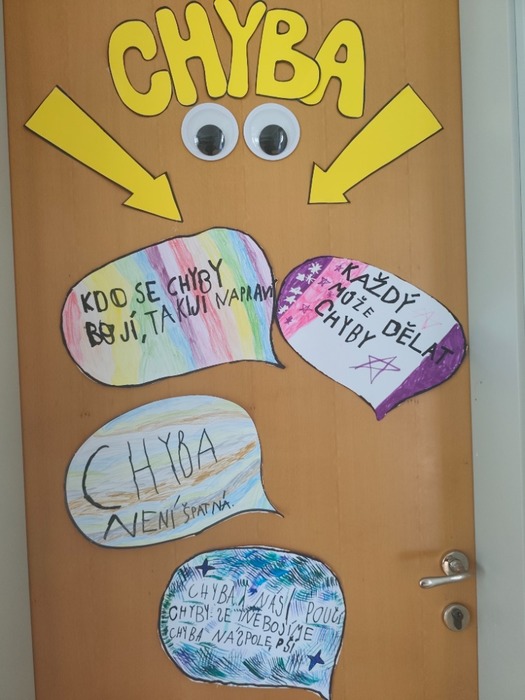 CHYBA
KDO SE CHYBY
BOJÍ, TAK IJI NAPRAVÍ
KAŽDÝ
MŮŽE DĚLAT
CHYBY
CHYBA
NENÍ ŠPATNÁ.
CHYBA NÁS POUČÍ
CHYBY SE NEBOJÍME
CHYBA NÁS POLEPŠÍ